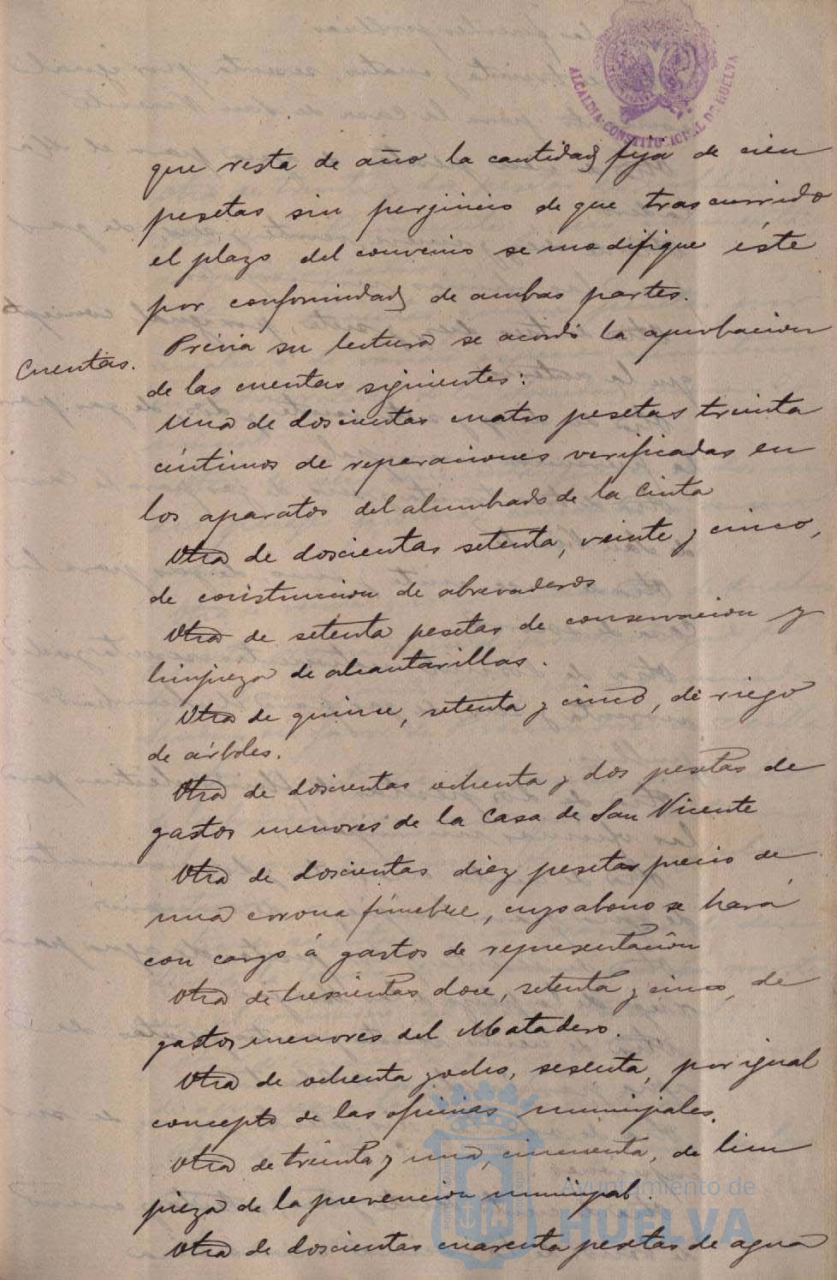 ALCALDIA·CONSTITUCIONAL DE HUELVA
que resta de año la cantidad fija de cien
pesetas sin perjuicio de que trascurrido
el plazo del convenio se modifique éste
por conformidad de ambas partes.
Cuentas.
Prévia su lectura se acordó la aprobacion
de las cuentas siguientes:
Una de doscientas cuatro pesetas treinta
céntimos de reparaciones verificadas en
los aparatos del alumbrado de la Cinta
Otra de doscientas setenta, veinte y cinco,
de construccion de abrevaderos
Otra de setenta pesetas de conservacion y
limpieza de alcantarillas.
Otra de quince, setenta y cinco, de riego
de árboles.
Otra de doscientas ochenta y dos pesetas de
gastos menores de la Casa de San Vicente
Otra de doscientas diez pesetas precio de
una corona fúnebre, cuyo abono se hará
con cargo á gastos de representacion
Otra de trescientas doce, setenta y cinco, de
gastos menores del Matadero.
Otra de ochenta y ocho, sesenta, por igual
concepto de las oficinas municipales.
Otra de treinta y una, cincuenta, de lim
pieza de la prevencion municipal.
Otra de doscientas cuarenta pesetas de agua
Ayuntamiento de
HUELVA